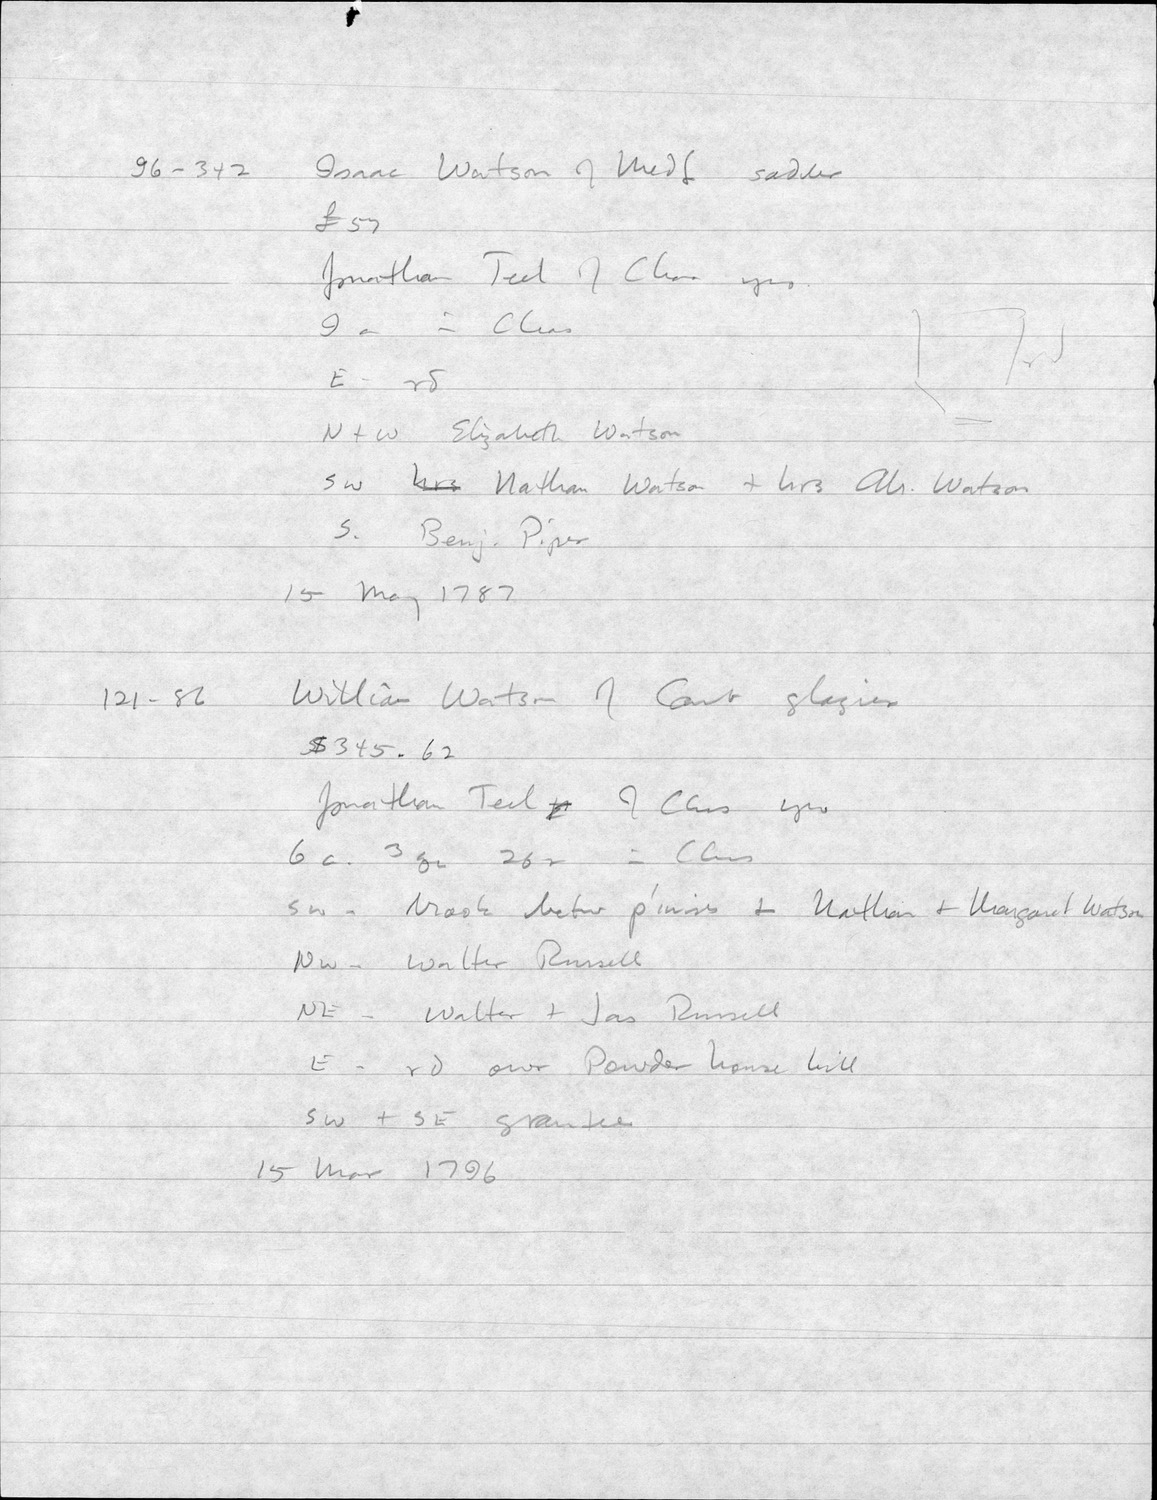 96-342 Isaac Watson of Medf sadler
£57
Jonathan Teel of Chas yeo.
9 a in Chas
E - rd
rd
N + W Elizabeth Watson
SW hrs Nathan Watson + hrs Ab. Watson
S. Benj. Piper
15 May 1787
121-86 William Watson of Camb glazier
$345.62
Jonathan Teel of Chas yeo
6 a. 3 qu 26 r in Chas
SW - brook betw p'mises + Nathan + Margaret Watson
NW - Walter Russell
NE - Walter + Jas Russell
E - rd over Powder house hill
SW + SE grantee
15 Mar 1796